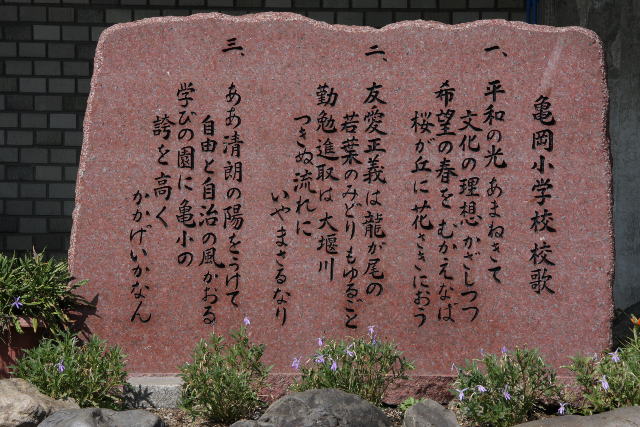 亀岡小学校校歌
一、平和の光 あまねきて
文化の理想 かざしつつ
希望の春を むかえなば
桜が丘に 花さきにおう
二、友愛正義は 龍が尾の
若葉のみどり もゆるごと
勤勉進取は 大堰川
つきぬ流れに
いやまさるなり
三、ああ清朗の 陽をうけて
自由と自治の 風かおる
学びの園に 亀小の
誇を高く
かかげいかなん